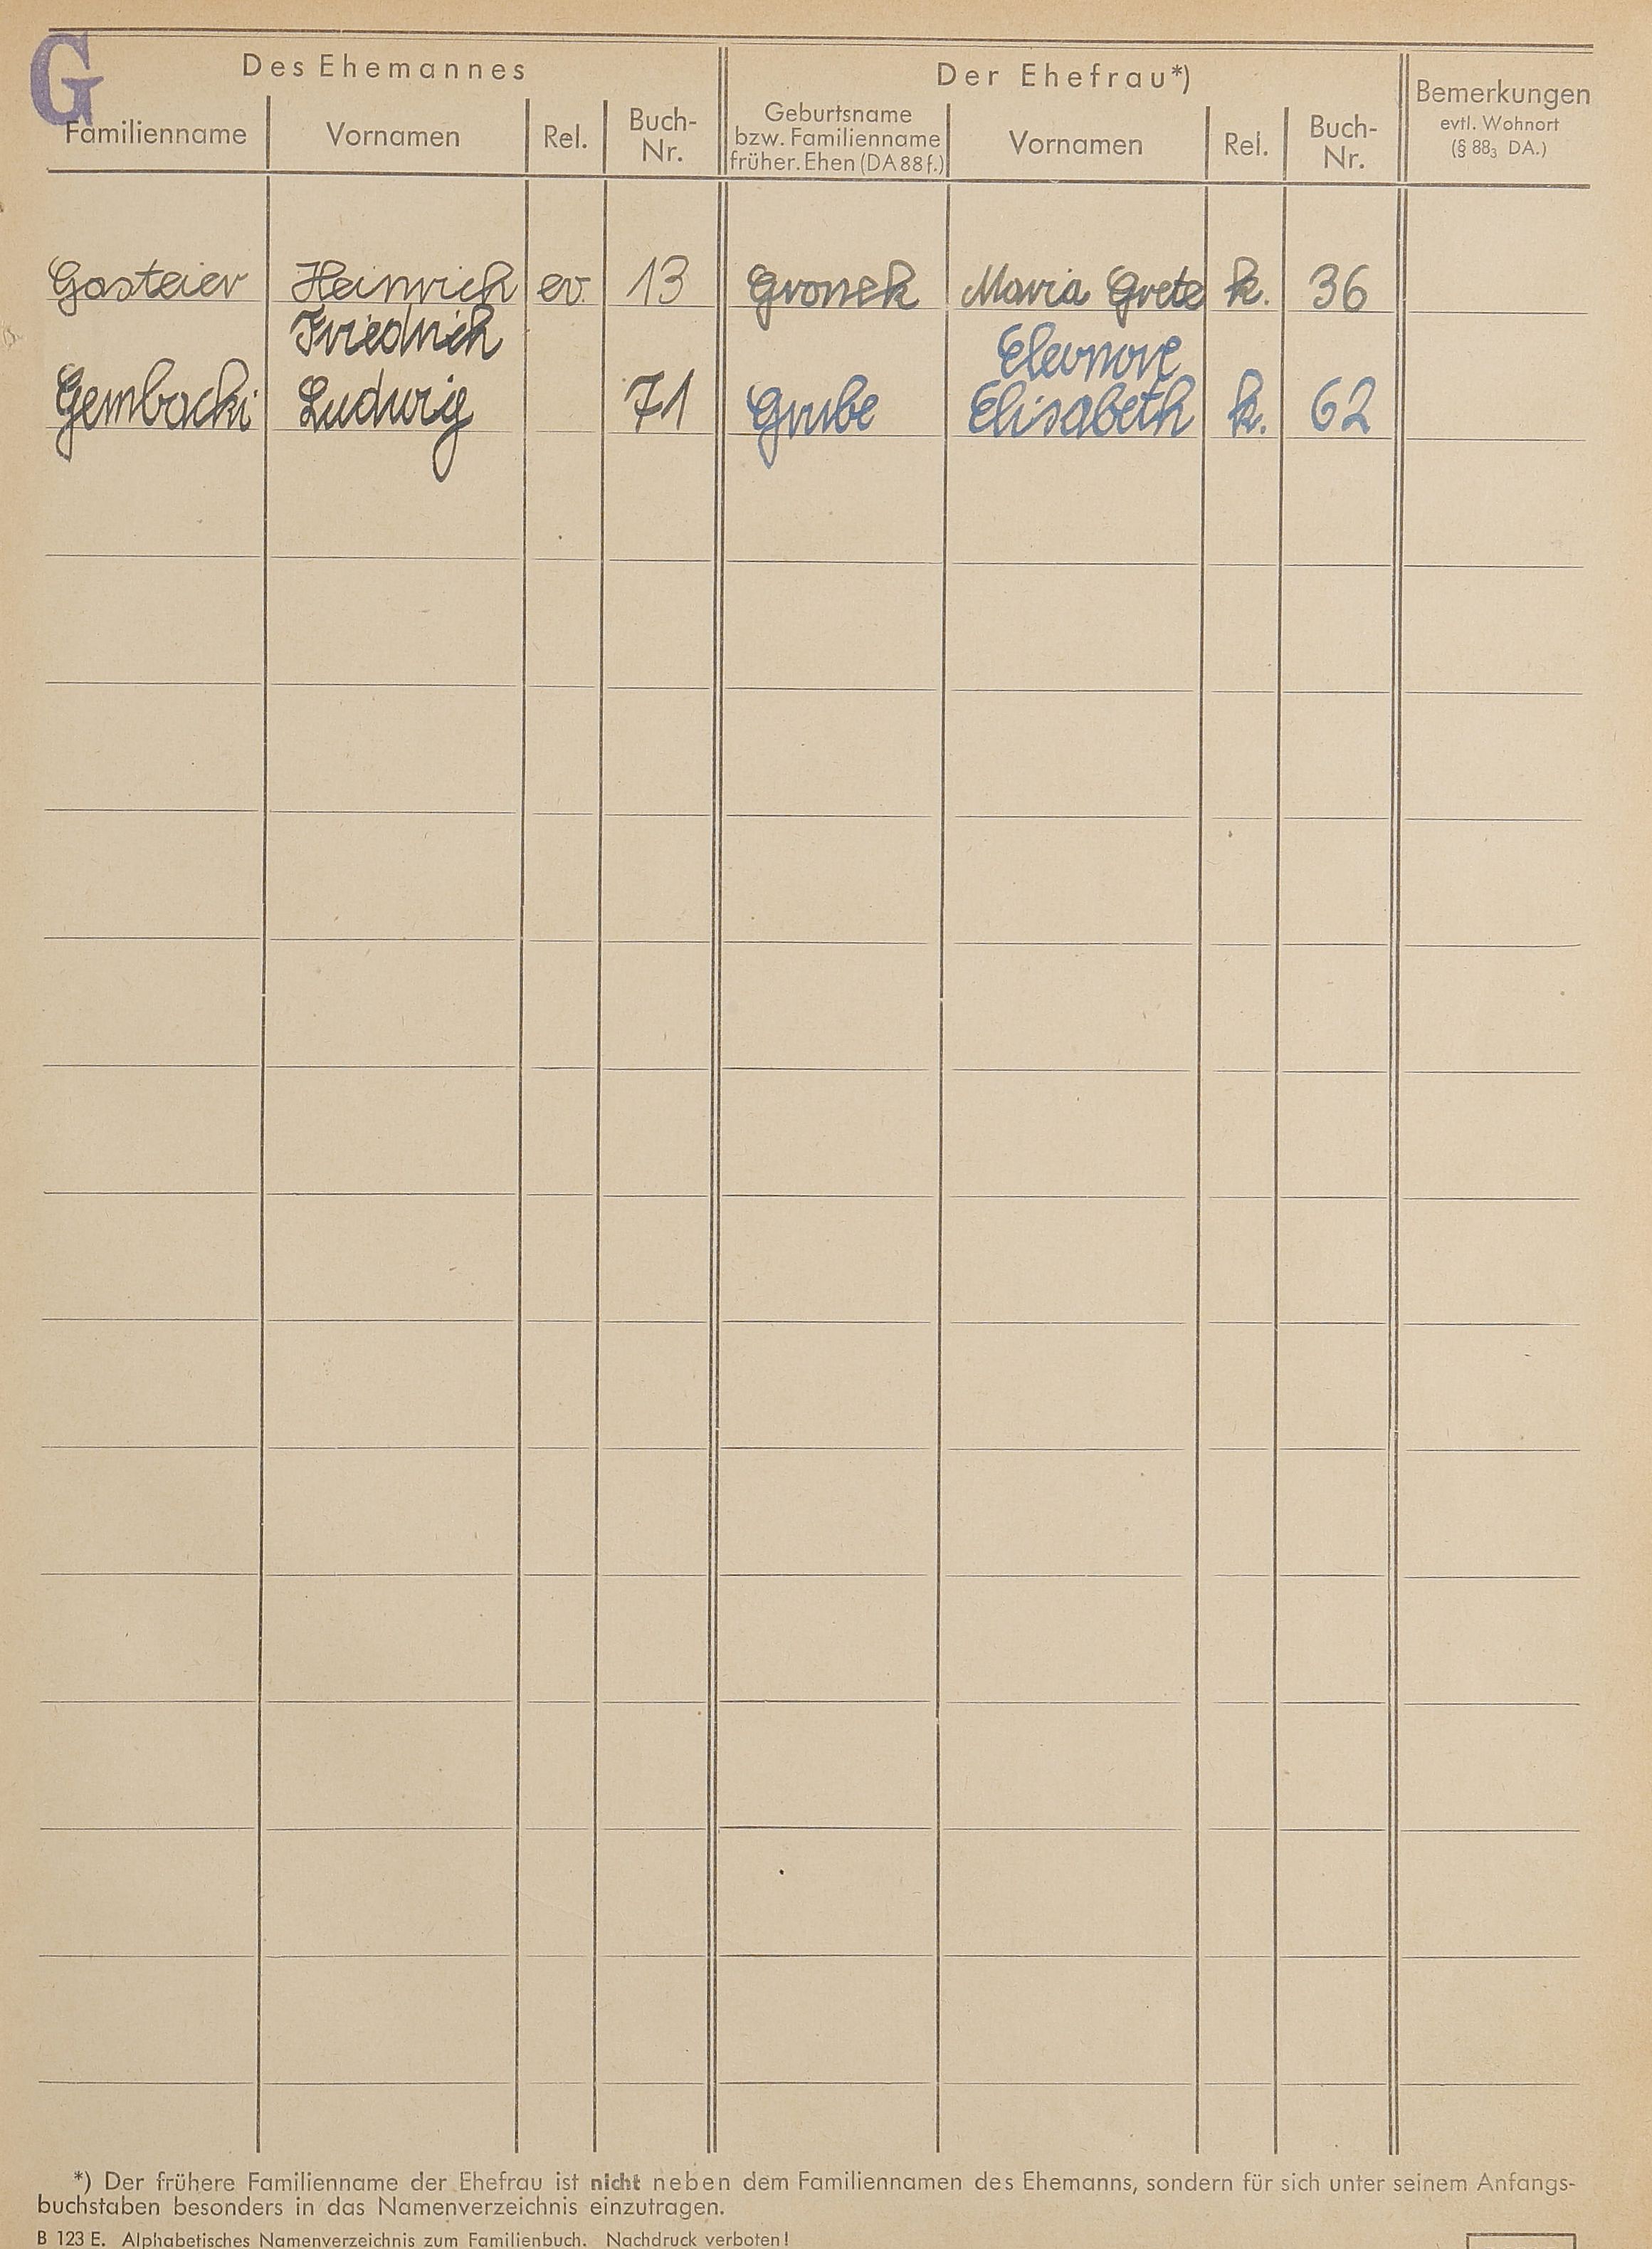 G
Des Ehemannes
Der Ehefrau*)
Familienname
Vornamen
Rel.
Buch-
Nr.
Geburtsname
bzw. Familienname
früher. Ehen (DA 88 f.)
Vornamen
Rel.
Buch-
Nr.
Bemerkungen
evtl. Wohnort
(§ 88₃ DA.)
Gasteier Heinrich ev. 13 Gronek Maria Grete k. 36
Friedrich Eleonore
Gembacki Ludwig 71 Grube Elisabeth k. 62
*) Der frühere Familienname der Ehefrau ist nicht neben dem Familiennamen des Ehemanns, sondern für sich unter seinem Anfangs-
buchstaben besonders in das Namenverzeichnis einzutragen.
B 123 E. Alphabetisches Namenverzeichnis zum Familienbuch. Nachdruck verboten!